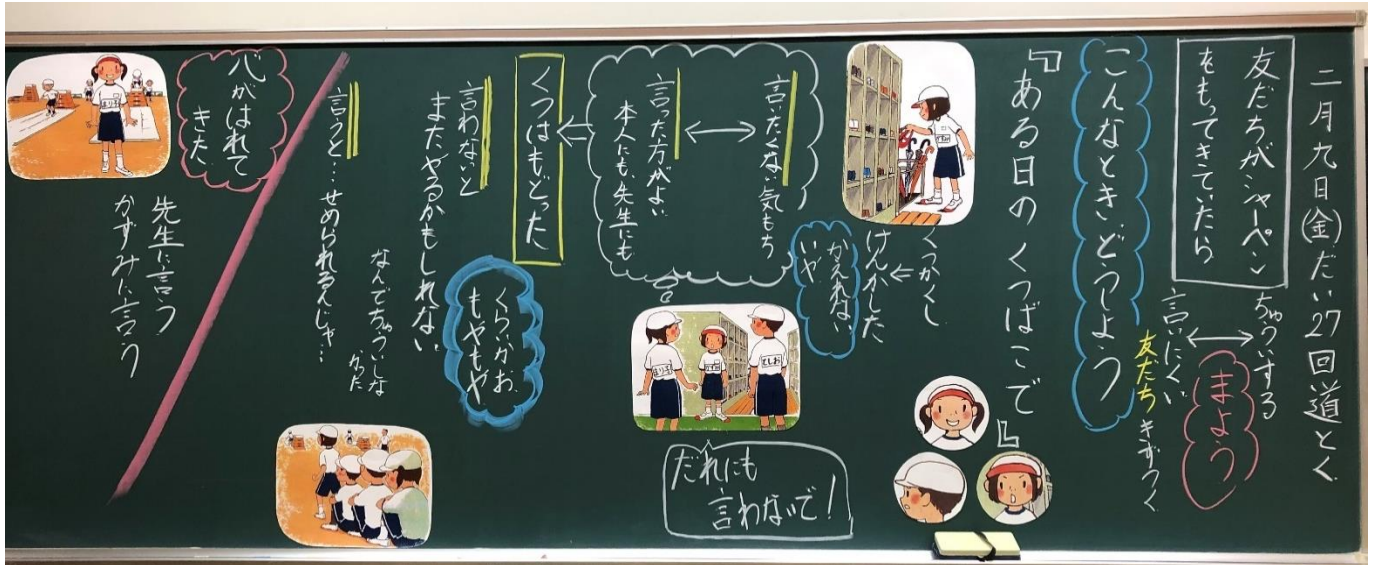 二月九日(金)だい27回道とく
友だちがシャーペン
をもってきていたら
ちゅういする
言いにくい
友だちきずつく
まよう
こんなときどうしよう
『ある日のくつばこで』
くつかくし
けんかした
かえれない
いや
言いたくない気もち
言った方がよい
本人にも、先生にも
だれにも
言わないで!
くつはもどった
言わないと
またやるかもしれない
くらいかお
もやもや
なんでちゅういしな
かった
言うと…せめられるんじゃ…
心がはれて
きた
先生に言う
かずみに言う
まり子
としお
まり子